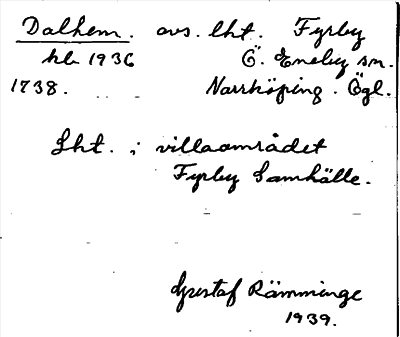 Dalhem. avs. lht. Fyrby
hb 1936 Ö. Eneby sn.
1738. Norrköping. Ögl.
Lht. i villaområdet
Fyrby Samhälle.
Gustaf Rämminge
1939.